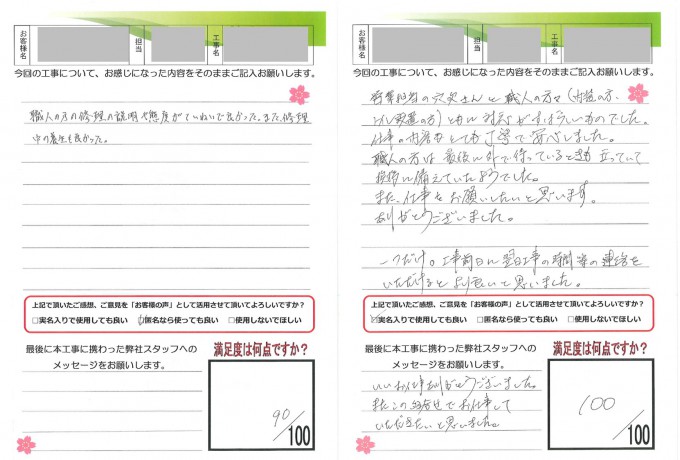 お客様名
担当
工事名
今回の工事について、お感じになった内容をそのままご記入お願いします。
職人の方の修理の説明や態度がていねいで良かった。また修理
中の養生も良かった。
上記で頂いたご感想、ご意見を「お客様の声」として活用させて頂いてよろしいですか？
□実名入りで使用しても良い □匿名なら使っても良い □使用しないでほしい
最後に本工事に携わった弊社スタッフへの
メッセージをお願いします。
満足度は何点ですか？
90
/100
お客様名
担当
工事名
今回の工事について、お感じになった内容をそのままご記入お願いします。
営業担当の穴史さんと職人の方々(内装の方、
設置の方)ともに対応がすばらしいものでした。
仕事の内容もとても丁寧で安心しました。
職人の方は最後に外で待っているときも立っていて
挨拶に備えていたようでした。
また、仕事をお願いしたいと思います。
ありがとうございました。
一つだけ。工事前日に翌日工事の時間等の連絡を
いただけると より良いと思いました。
上記で頂いたご感想、ご意見を「お客様の声」として活用させて頂いてよろしいですか？
□実名入りで使用しても良い □匿名なら使っても良い □使用しないでほしい
最後に本工事に携わった弊社スタッフへの
メッセージをお願いします。
満足度は何点ですか？
いいお仕事ありがとうございました。
またこの組合せでお仕事して
いただきたいと思いました。
100
/100